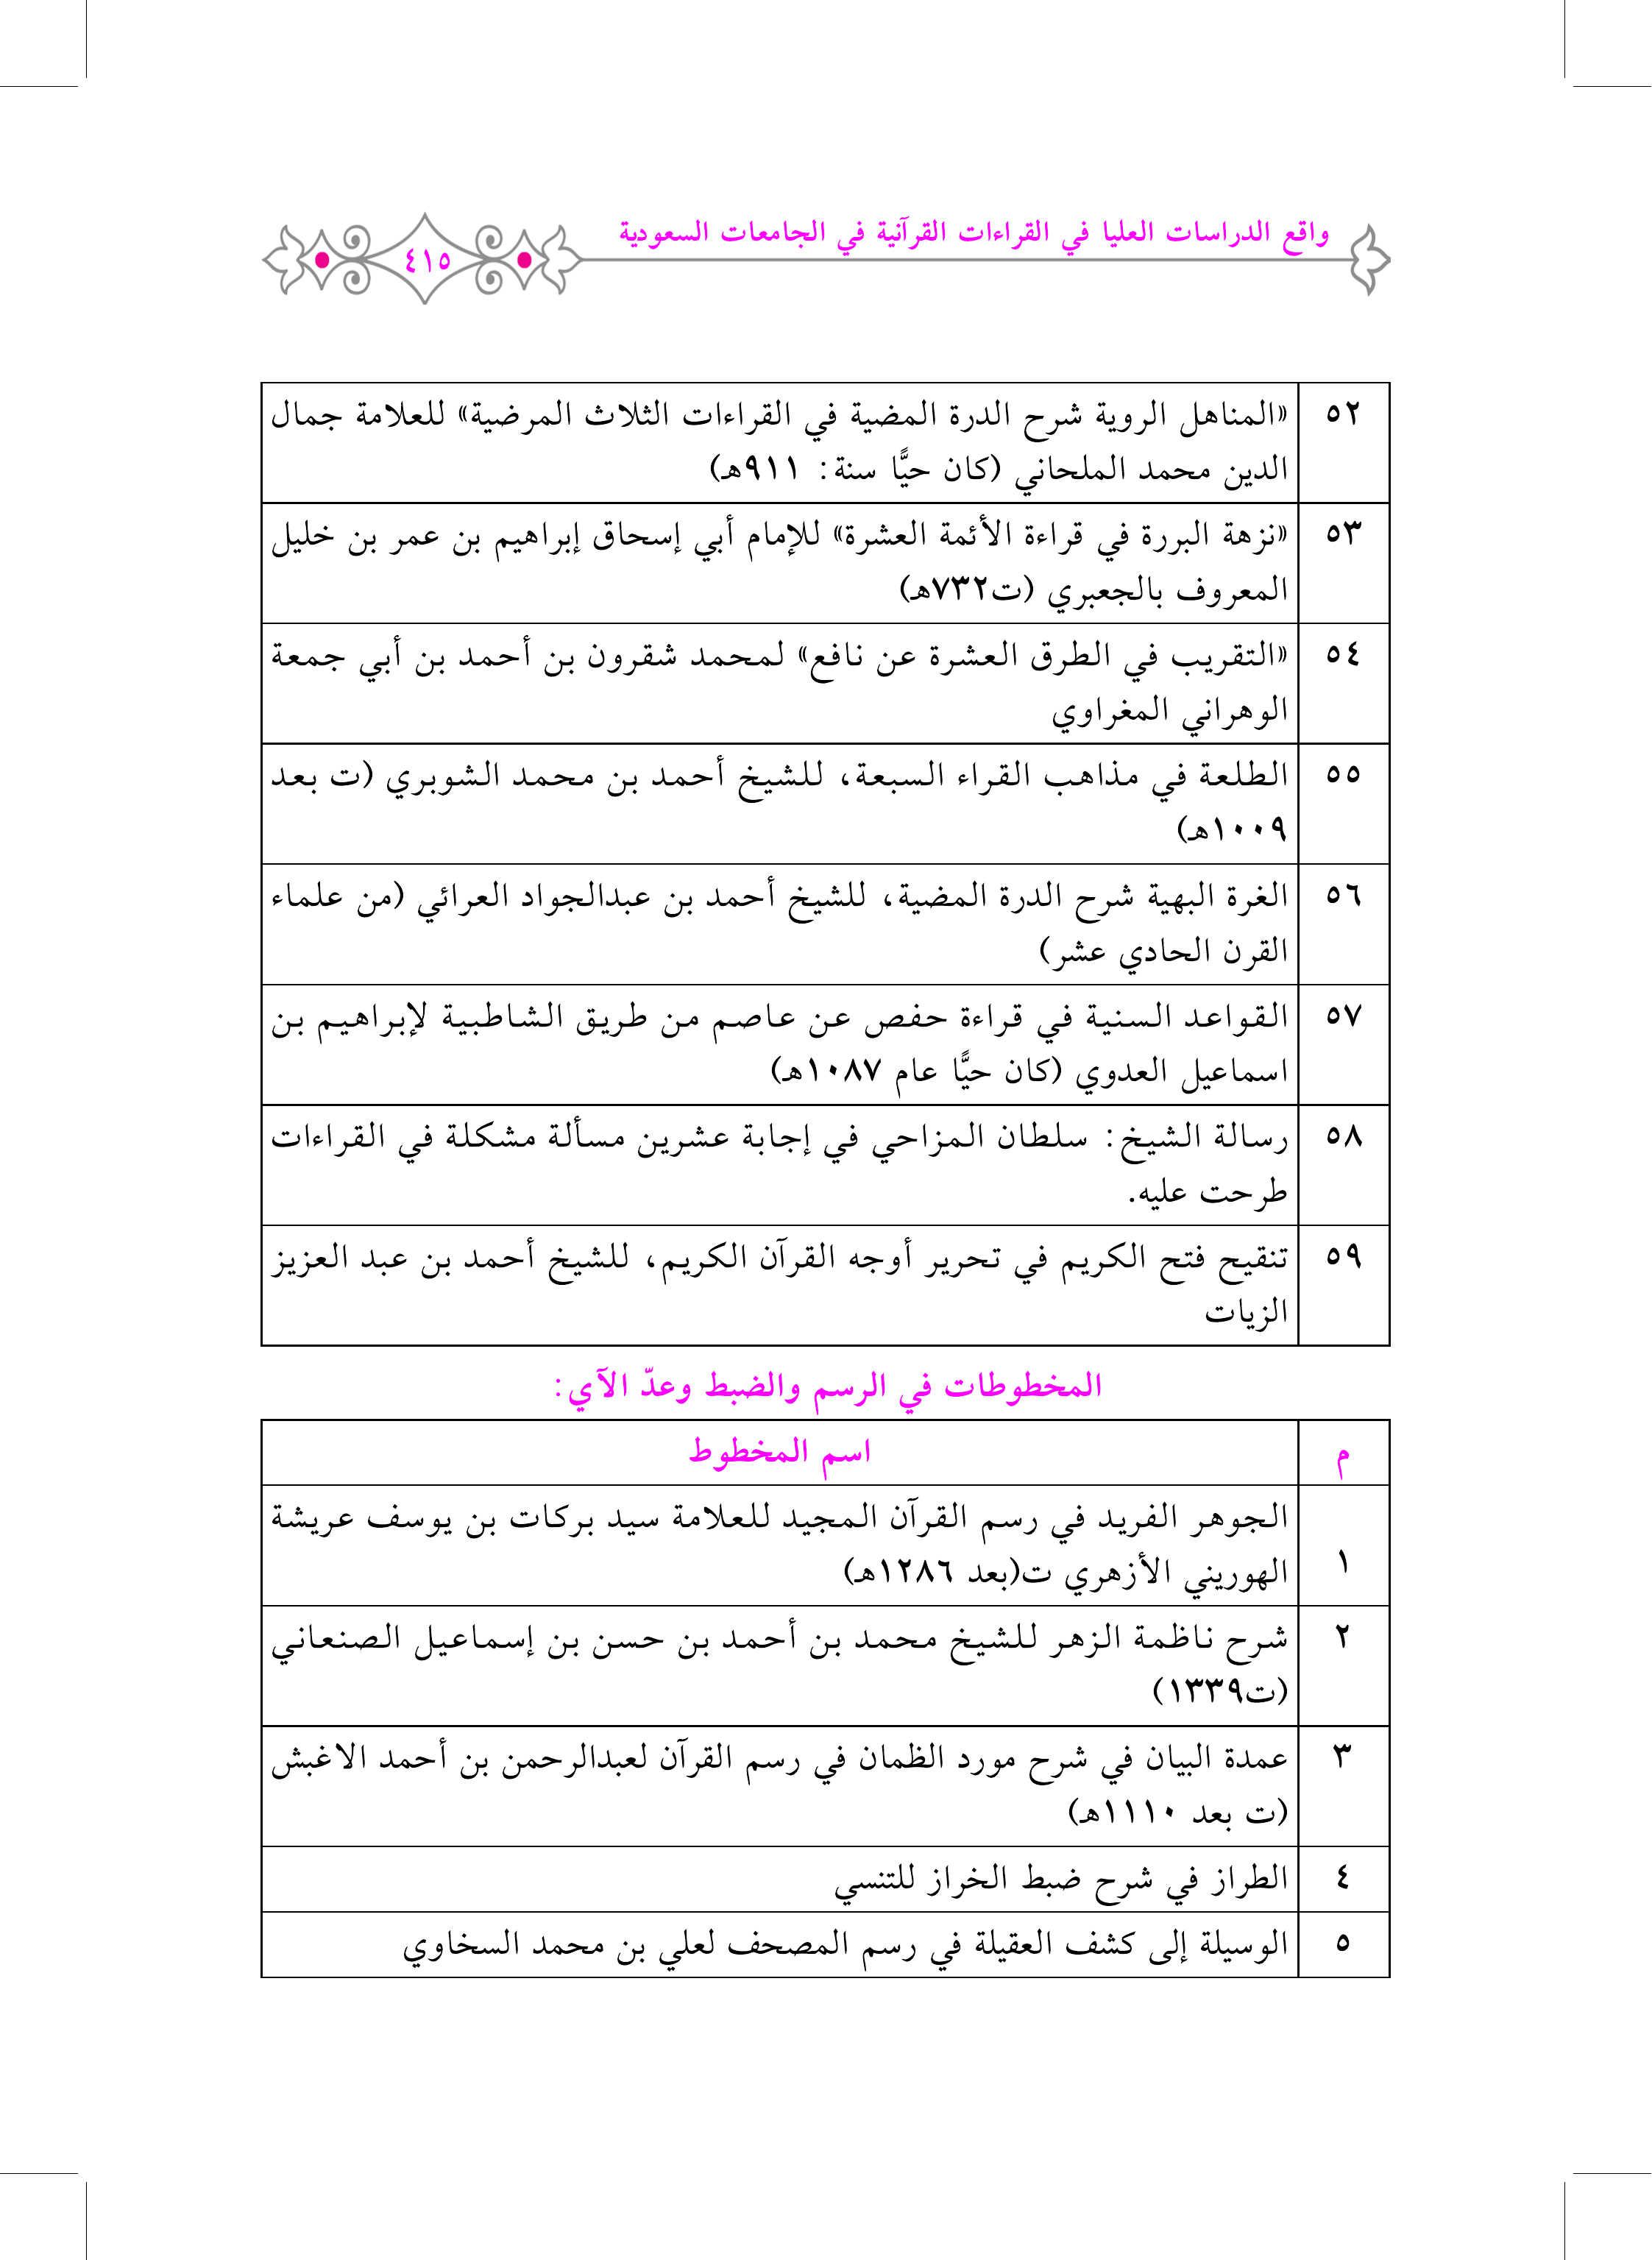 واقع الدراسات العليا في القراءات القرآنية في الجامعات السعودية
٤١٥
٥٢ «المناهل الروية شرح الدرة المضية في القراءات الثلاث المرضية» للعلامة جمال
الدين محمد الملحاني (كان حيًّا سنة: ٩١١هـ)
٥٣ «نزهة البررة في قراءة الأئمة العشرة» للإمام أبي إسحاق إبراهيم بن عمر بن خليل
المعروف بالجعبري (ت٧٣٢هـ)
٥٤ «التقريب في الطرق العشرة عن نافع» لمحمد شقرون بن أحمد بن أبي جمعة
الوهراني المغراوي
٥٥ الطلعة في مذاهب القراء السبعة، للشيخ أحمد بن محمد الشوبري (ت بعد
١٠٠٩هـ)
٥٦ الغرة البهية شرح الدرة المضية، للشيخ أحمد بن عبدالجواد العرائي (من علماء
القرن الحادي عشر)
٥٧ القواعد السنية في قراءة حفص عن عاصم من طريق الشاطبية لإبراهيم بن
اسماعيل العدوي (كان حيًّا عام ١٠٨٧هـ)
٥٨ رسالة الشيخ: سلطان المزاحي في إجابة عشرين مسألة مشكلة في القراءات
طرحت عليه.
٥٩ تنقيح فتح الكريم في تحرير أوجه القرآن الكريم، للشيخ أحمد بن عبد العزيز
الزيات
المخطوطات في الرسم والضبط وعدّ الآي:
م اسم المخطوط
١ الجوهر الفريد في رسم القرآن المجيد للعلامة سيد بركات بن يوسف عريشة
الهوريني الأزهري ت(بعد ١٢٨٦هـ)
٢ شرح ناظمة الزهر للشيخ محمد بن أحمد بن حسن بن إسماعيل الصنعاني
(ت١٣٣٩)
٣ عمدة البيان في شرح مورد الظمان في رسم القرآن لعبدالرحمن بن أحمد الاغبش
(ت بعد ١١١٠هـ)
٤ الطراز في شرح ضبط الخراز للتنسي
٥ الوسيلة إلى كشف العقيلة في رسم المصحف لعلي بن محمد السخاوي